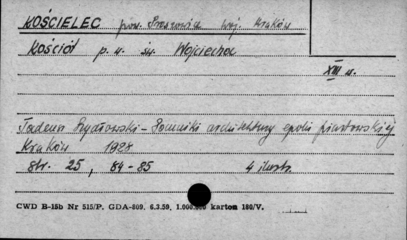 KOŚCIELEC pow. Proszowice woj. Kraków
Kościół p.w. św. Wojciecha
XIII w.
Tadeusz Szydłowski - Pomniki architektury epoki piastowskiej
Kraków 1928
str. 25, 84-85 4 ilustr.
CWD B-15b Nr 515/P. GDA-809. 6.3.59. 1.000.000 karton 180/V.